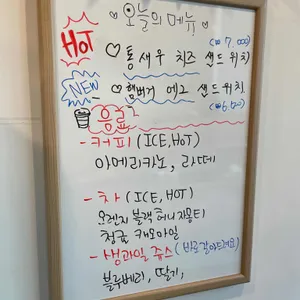 ♡오늘의 메뉴♡
HOT
(₩7,000)
♡통새우 치즈 샌드위치
NEW
♡햄버거 에그 샌드위치
음료
- 커피 (ICE, HOT)
아메리카노, 라떼
- 차 (ICE, HOT)
오렌지 블랙 허니자몽티
청귤 캐모마일
- 생과일 쥬스 (바로갈아드려요)
블루베리, 딸기,